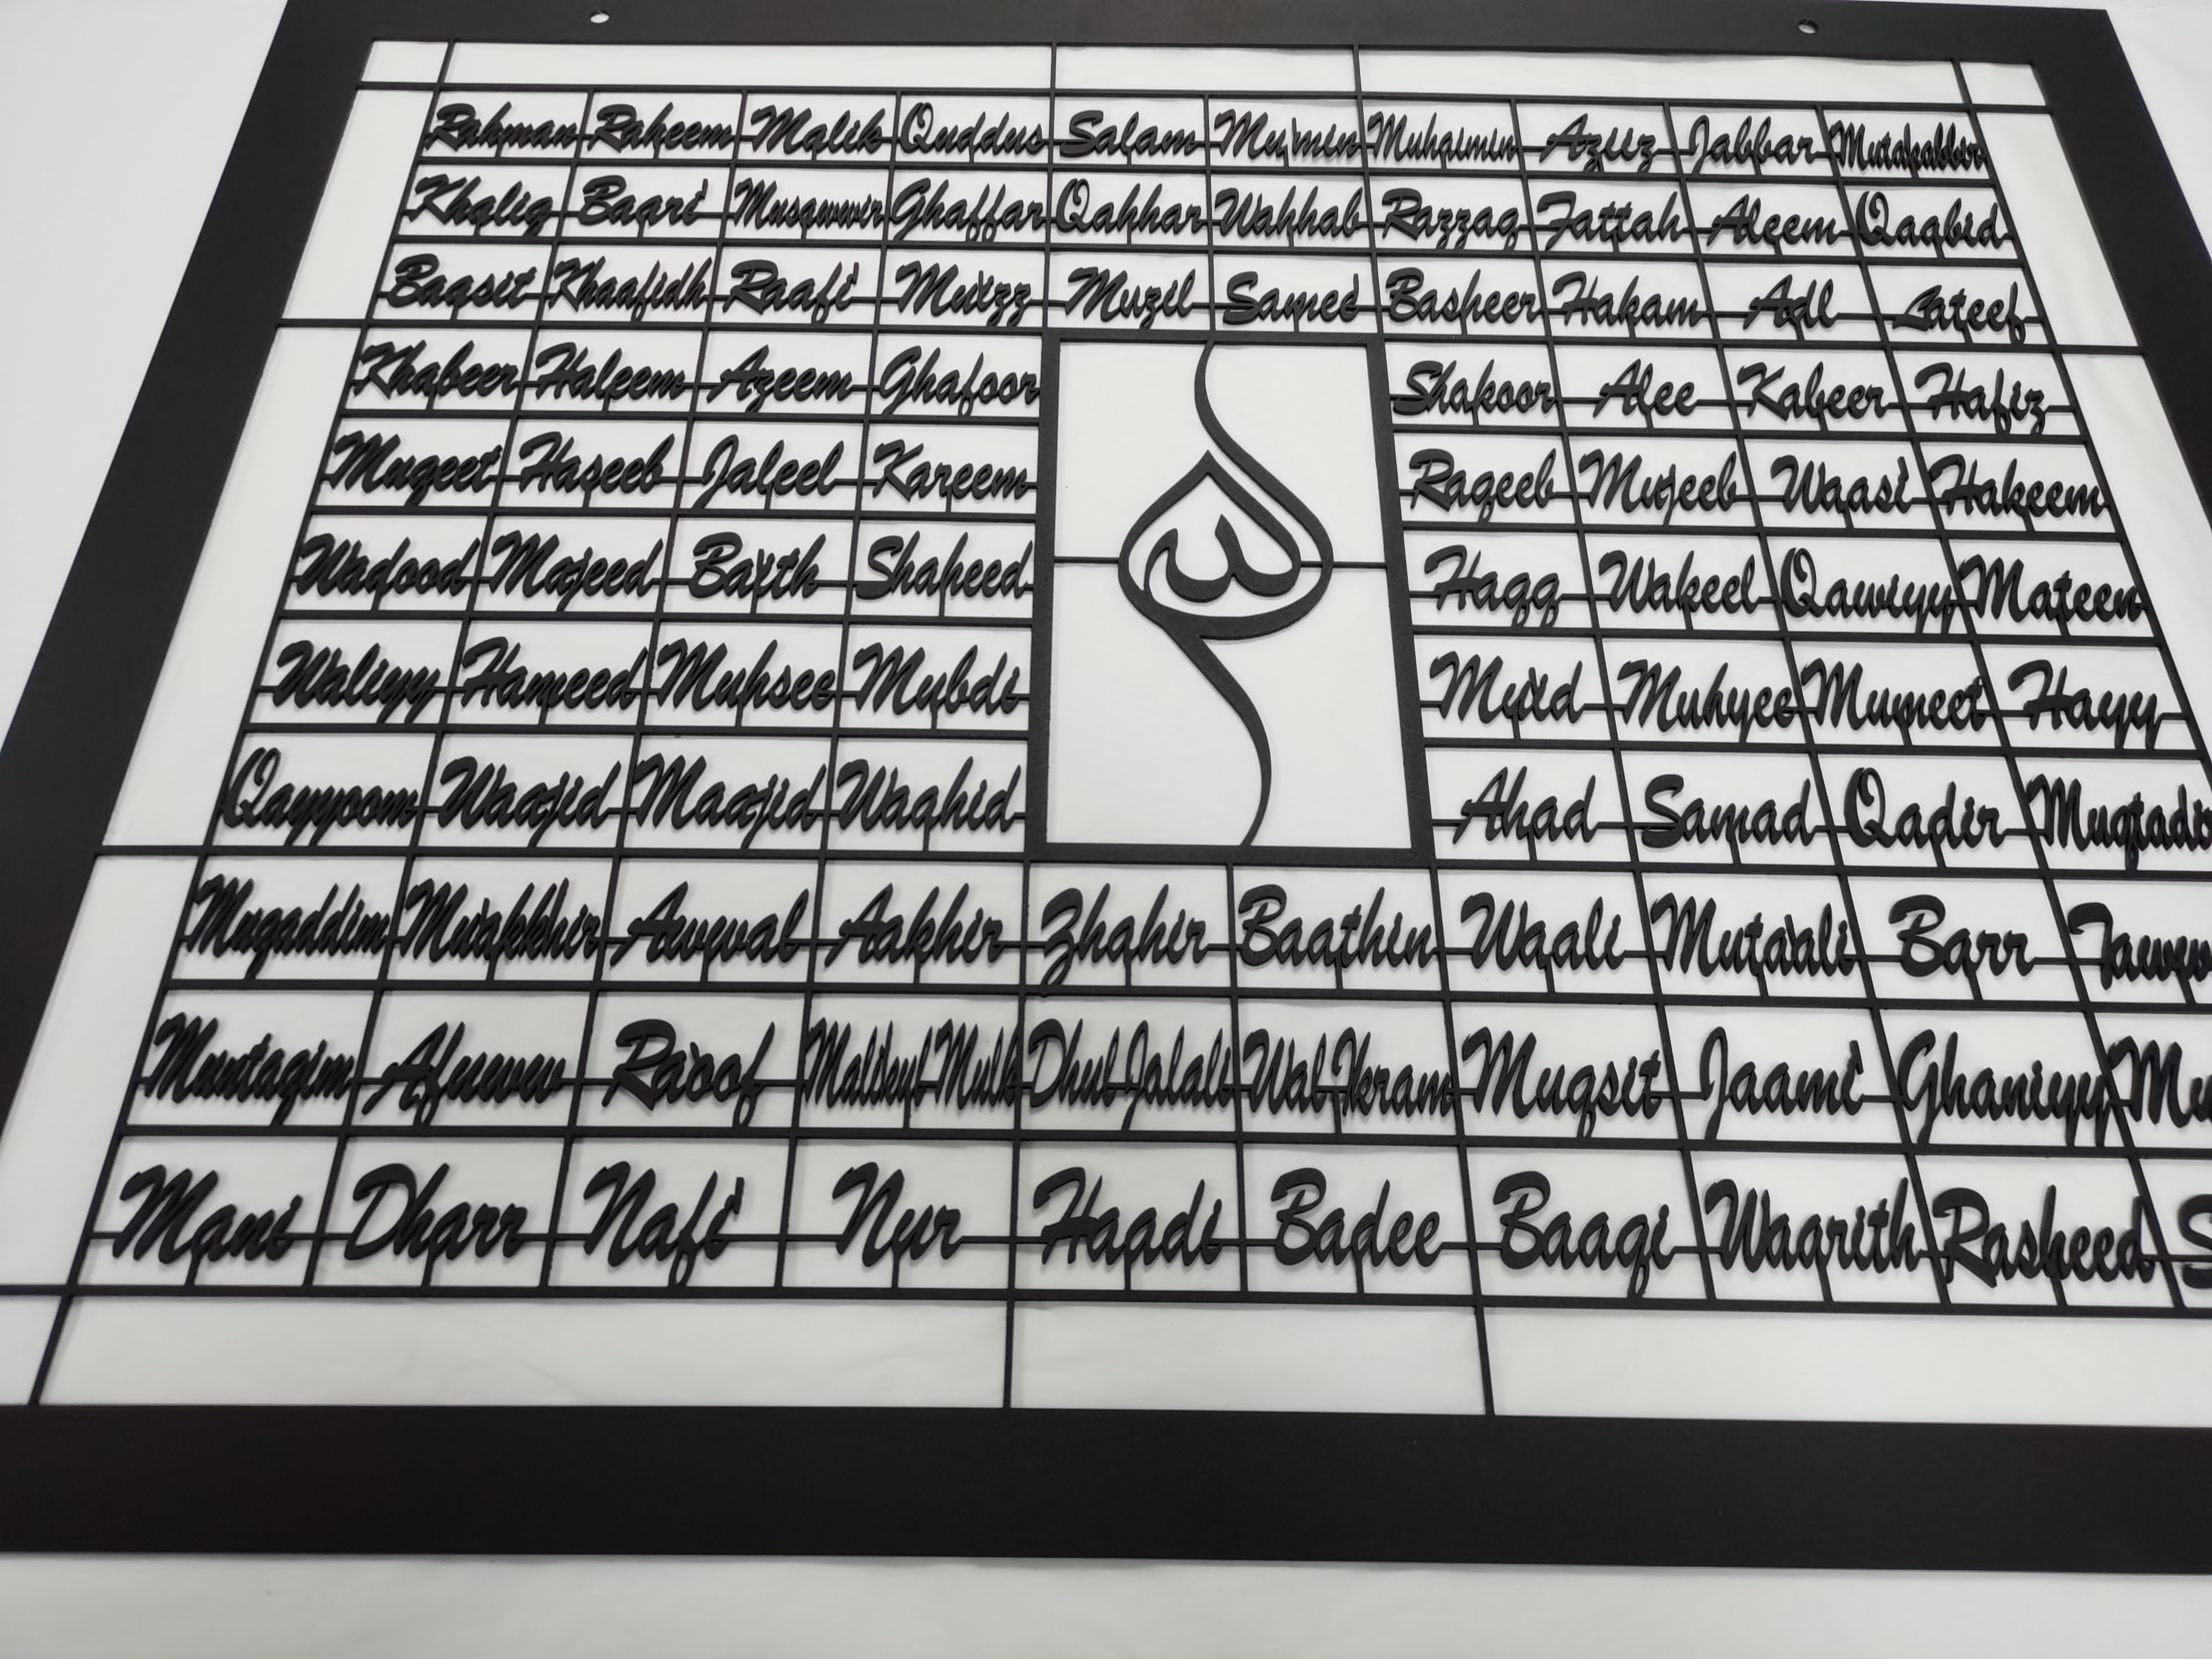 Rahman Raheem Malik Quddus Salam Mu'min Muhaimin Aziiz Jabbar Mutakabbir
Khaliq Baari' Musawwir Ghaffar Qahhar Wahhab Razzaq Fattah Aleem Qaabid
Baasit Khaafidh Raafi' Mu'izz Muzil Samee' Basheer Hakam Adl Lateef
Khabeer Haleem Azeem Ghafoor Shakoor Alee Kabeer Hafiz
Muqeet Haseeb Jaleel Kareem الله Raqeeb Mujeeb Waasi' Hakeem
Wadood Majeed Ba'ith Shaheed Haqq Wakeel Qawiyy Mateen
Waliyy Hameed Muhsee Mubdi Mu'id Muhyee Mumeet Hayy
Qayyoom Waajid Maajid Waahid Ahad Samad Qadir
Muqaddim Mu'akhhir Awwal Aakhir Zhahir Baathin Waali Muta'ali Barr
Muntaqim Afuww Ra'oof Malikul Mulk Dhul Jalali Wal Ikram Muqsit Jaami' Ghaniyy
Mani Dharr Nafi' Nur Haadi Badee Baaqi Waarith Rasheed